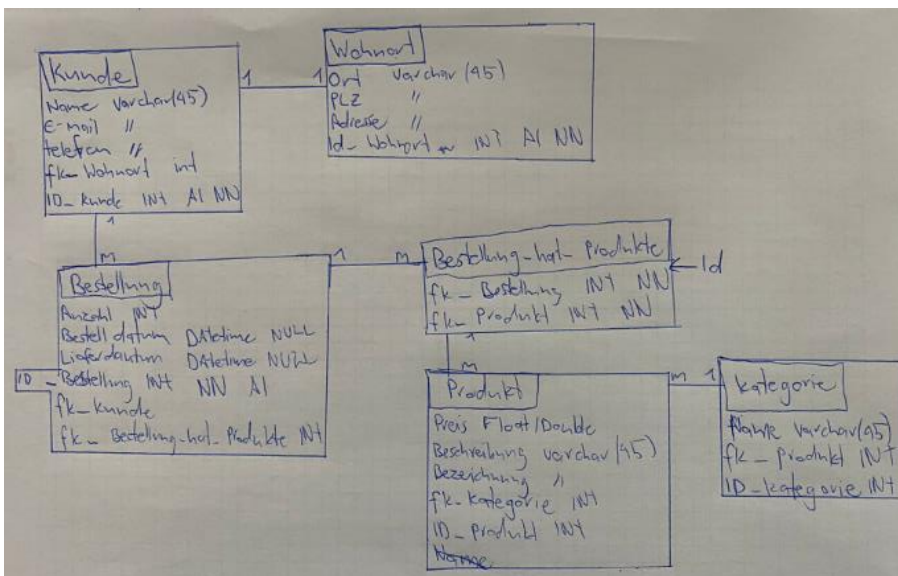 Kunde
Name varchar(45)
E-mail "
telefon "
fk_Wohnort int
ID_Kunde INT AI NN
1
1
Wohnort
Ort varchar(45)
PLZ "
Adresse "
Id_Wohnort INT AI NN
1
m
Bestellung
Anzahl INT
Bestelldatum DAtetime NULL
Lieferdautum DAtetime NULL
ID_Bestellung INT NN AI
fk_Kunde
fk_Bestellung_hat_Produkte INT
1
m
Bestellung_hat_Produkte
fk_Bestellung INT NN
fk_Produkt INT NN
Id
1
m
Produkt
Preis Float/Double
Beschreibung varchar(45)
Bezeichnung "
fk_Kategorie INT
ID_Produkt INT
Name
m
1
Kategorie
Name varchar(45)
fk_Produkt INT
ID_Kategorie INT